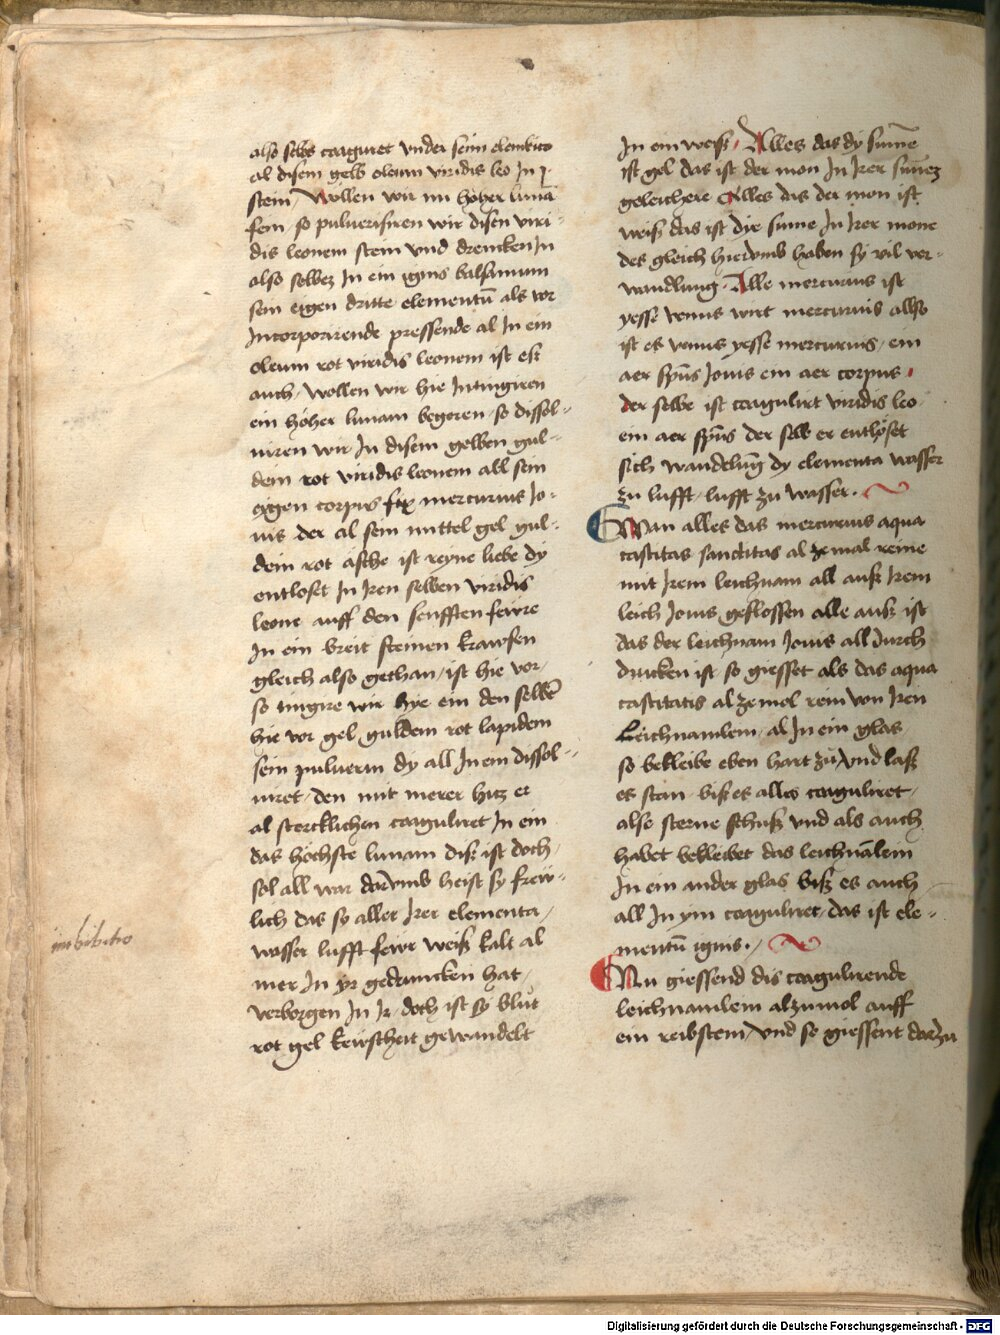 also selbs coaguret vnder seim elemkito
al disem gelb oleum viridis leo In J
stein / Wollen wir im hoher lunā
sem / so puluerisiren wir disen viri-
dis leonem stein vnd drencken In
also selbez In ein ignis balsamum
sein eigen dritte elementū als vor
Incorporirende pressende al In ein
oleum rot viridis leonem ist esk
auch / wollen wir hie Intingiren
ein hoher lunam begeren / so dissol-
uiren wir In disem gelben gul-
dein rot viridis leonem all sein
eygen corpus fix mercurius Jo-
uis der al sein mittel gel gul-
dein rot asche ist reyne liebe dy
entloset In Iren selben viridis
leone auff den senfften fewre
In ein breit steinen krawsen
gleich also gethan / ist hie vor /
so tingire wir hye ein den selbē
hie vor gel guldein rot lapidem
sein puluerin dy all In ein dissol-
uiret / den mit merer hitz er
al stercklichen coaguliret In ein
das hochste lunam diß ist doch /
sol all war darvmb heist sy frew-
lich das sy aller Irer elementa /
wasser lufft fewr weiß kalt al
mer In yr gedruncken hat /
verborgen In Ir / doch ist sy blut
rot gel kewscheit gewandelt
imbibitio
In ein weiß / Alles das dy sunne
ist gel das ist der mon In Irer sunnez
geleichere Alles das der mon ist
weiß das ist dye sunne In Irer mone
des gleich hiervmb haben sy vil ver-
wandlung / Alle mercurius ist
yesse venus wirt mercurius allso
ist es venus yesse mercurius / ein
aer spūs Jouis ein aer corpus /
der selbe ist coagulirt viridis leo
ein aer spūs der selb er entloset
sich wandelūg dy elementa wasser
zu lufft / lufft zu wasser .
Wan alles das mercurius aqua
castitas sanctitas al zemal reine
mit Irem leichnam all auß Irem
leich Jouis geflossen alle auß ist
das der leichnam Jouis all durch
drucken ist / so giesset als das aqua
castitatis al ze mol rein von Iren
Leichnamlein / al In ein glas /
so bekleibe eben hart zu / vnd laß
es stan biß es alles coaguliret /
also sterne schuß vnd als auch
habet bekleibet das leichnālein
In ein ander glas biß es auch
all In ym coaguliret / das ist ele-
mentū ignis .
Nu giessend dis coagulirende
leichnamlein alzumol auff
ein reibstein / vnd so giessent darzu
Digitalisierung gefördert durch die Deutsche Forschungsgemeinschaft - DFG